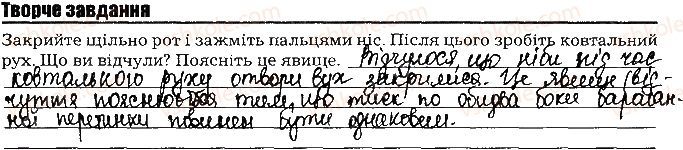 Творче завдання
Закрийте щільно рот і зажміть пальцями ніс. Після цього зробіть ковтальний
рух. Що ви відчули? Поясніть це явище. Відчулося, що ніби під час
ковтального руху отвори вух закрились. Це явище (від-
чуття пояснюється тим, що тиск по обидва боки барабан-
ної перетинки повинен бути однаковим.